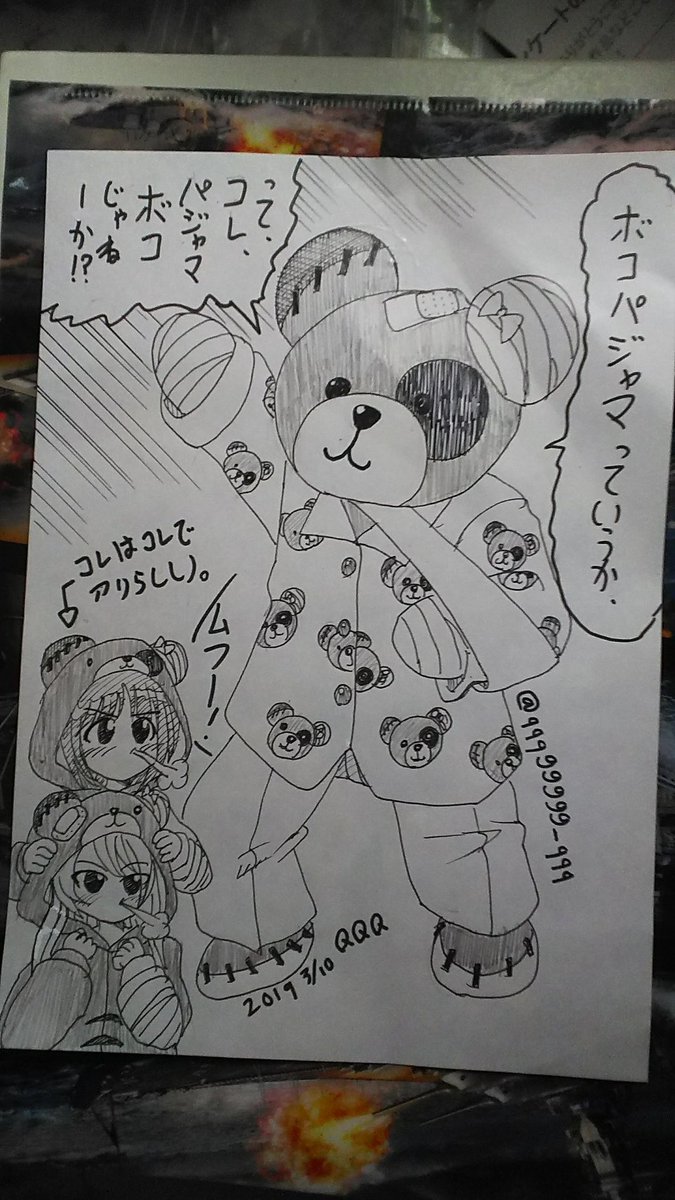 ボコパジャマっていうか、
って、
コレ、
パジャマ
ボコ
じゃね
ーか!?
コレはコレで
アリらしい。
ムフー!
2019 3/10 QQQ
ンケートの